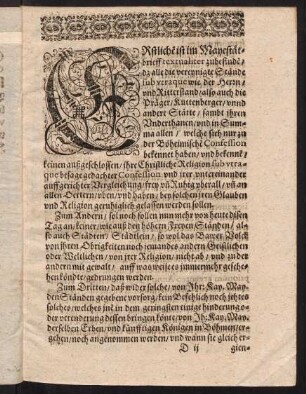 ERstlich ist im Mayestät
brieff textualiter zubefinde/
dz alle die vereynigte Stände
sub utraque wie der Herrn/
vnd Ritterstand/also auch der
Präger/Kuttenberger/vnnd
andere Stätte/sambt jhren
Vnderthanen/vnd in Sum-
ma allen/welche sich nur zu
der Böheimische Confession
bekennet haben/vnd bekennt/
keinen außgeschlossen/jhre Christliche Religion sub utra-
que besage gedachter Confession vnd irer vntereinander
auffgerichter Vergleichung/frey vñ Ruhig vberall/vñ an
allen Oertern/vben/vnd haben/bey solchem iren Glauben
vnd Religion geruhiglich gelassen werden sollen.
Zum Andern/sol noch sollen nun mehr von heute disen
Tag an/keiner/wie auß den höhern Freyen Ständen/als-
so auch Städten/Städtlein/so wol das Bawer Volck
von jhren Obrigkeiten noch jemandes andern Geistlichen
oder Weltlichen/von irer Religion/nicht ab/vnd zu der
andern mit gewalt/auff waserweises immer mehr gesche-
hen köndte/gedrungen werden.
Zum Dritten/daß wider solche/von Jhr: Kay. May.
den Ständen gegebene vorsorg/kein Befehlich noch jchtes
solches/welches jn in dem geringsten einige hinderung o-
der verenderung dessen bringen könte/von Jh: Kay. May.
derselben Erben/vnd künfftigen Königen in Böhmen/er-
gehen/noch angenommen werden/vnd wann sie gleich er-
D ij gien-